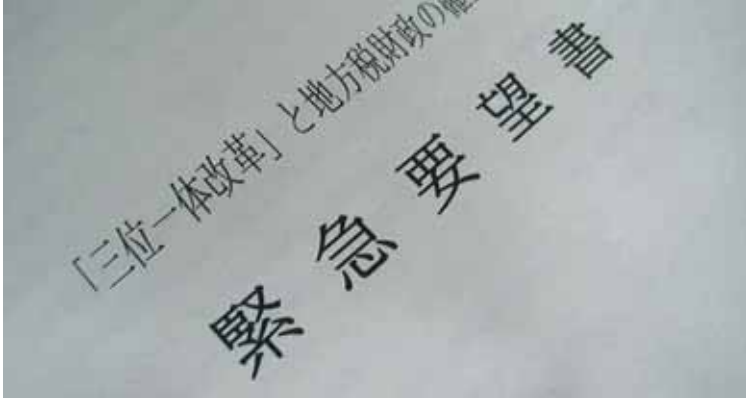 「三位一体改革」と地方税財政の確
緊急要望書